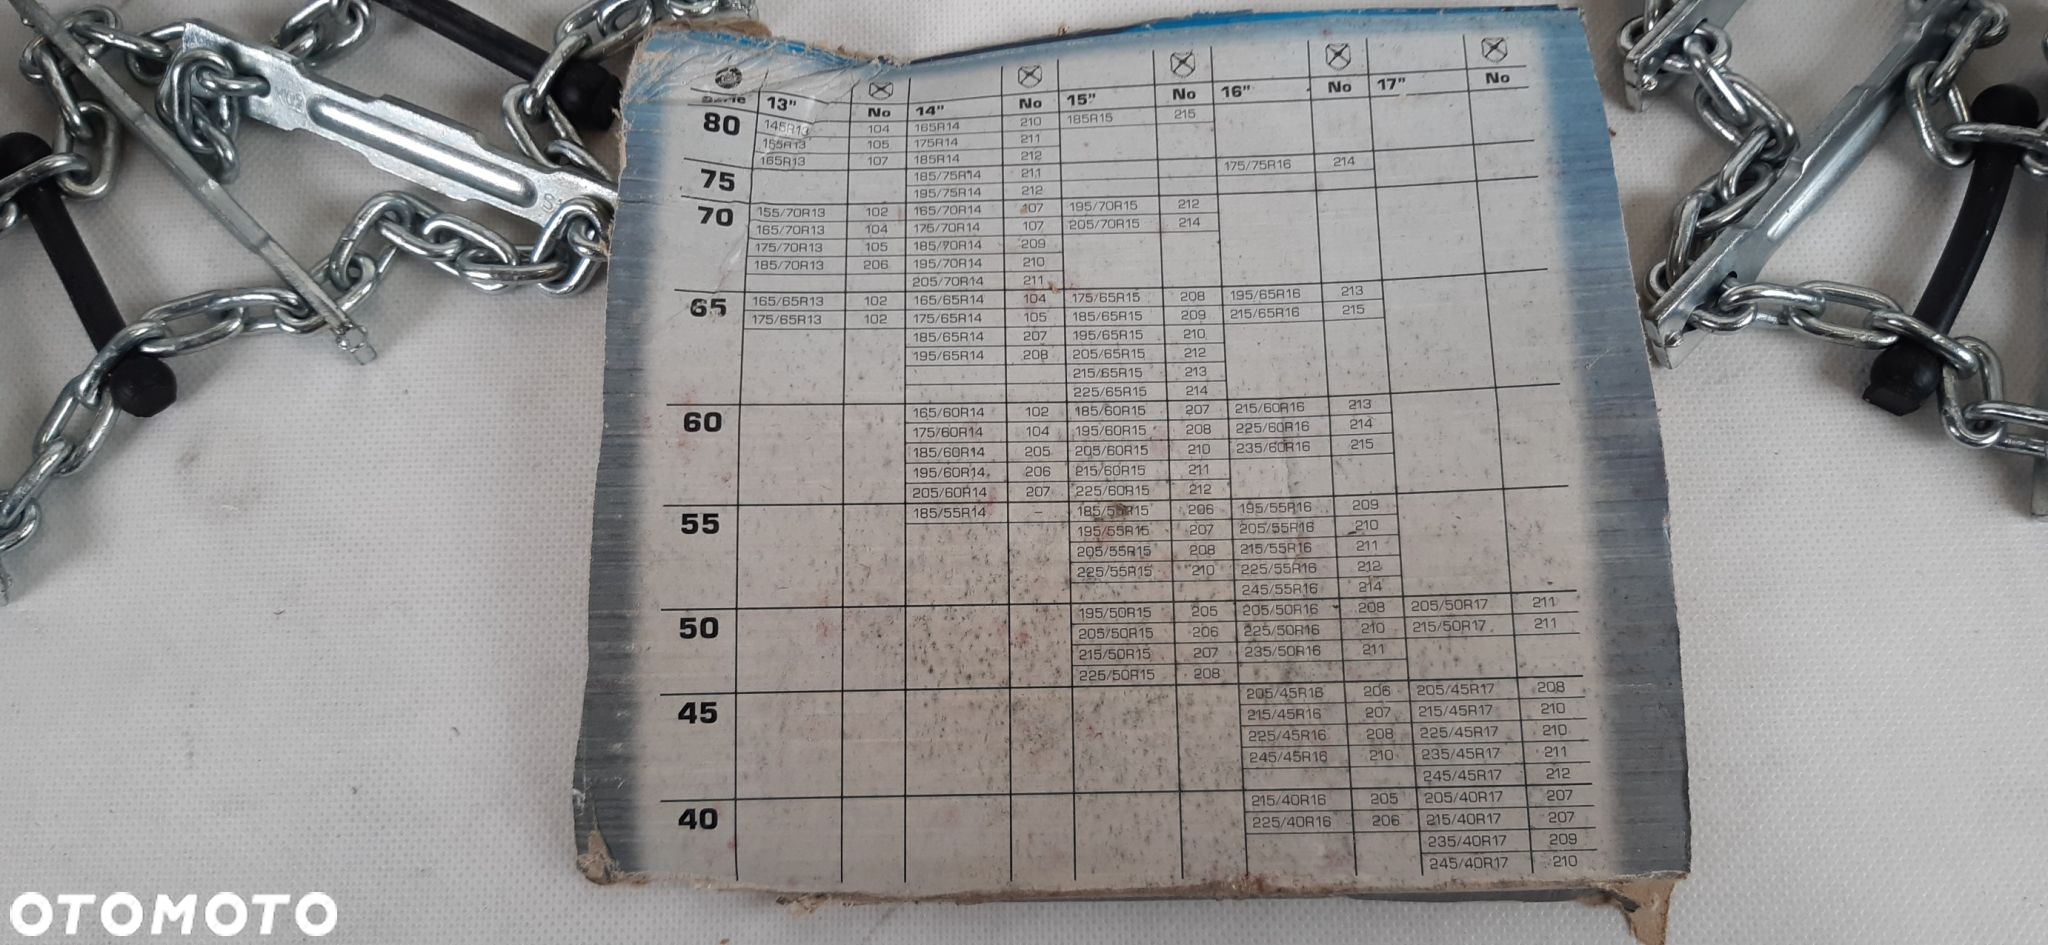 13" No 14" No 15" No 16" No 17" No
80 145R13 104 165R14 210 185R15 215
155R13 105 175R14 211
165R13 107 185R14 212
75 185/75R14 211 175/75R16 214
195/75R14 212
70 155/70R13 102 165/70R14 107 195/70R15 212
165/70R13 104 175/70R14 107 205/70R15 214
175/70R13 105 185/70R14 209
185/70R13 206 195/70R14 210
205/70R14 211
65 165/65R13 102 165/65R14 104 175/65R15 208 195/65R16 213
175/65R13 102 175/65R14 105 185/65R15 209 215/65R16 215
185/65R14 207 195/65R15 210
195/65R14 208 205/65R15 212
215/65R15 213
225/65R15 214
60 165/60R14 102 185/60R15 207 215/60R16 213
175/60R14 104 195/60R15 208 225/60R16 214
185/60R14 205 205/60R15 210 235/60R16 215
195/60R14 206 215/60R15 211
205/60R14 207 225/60R15 212
55 185/55R14 - 185/55R15 206 195/55R16 209
195/55R15 207 205/55R16 210
205/55R15 208 215/55R16 211
225/55R15 210 225/55R16 212
245/55R16 214
50 195/50R15 205 205/50R16 208 205/50R17 211
205/50R15 206 225/50R16 210 215/50R17 211
215/50R15 207 235/50R16 211
225/50R15 208
45 205/45R16 206 205/45R17 208
215/45R16 207 215/45R17 210
225/45R16 208 225/45R17 210
245/45R16 210 235/45R17 211
245/45R17 212
40 215/40R16 205 205/40R17 207
225/40R16 206 215/40R17 207
235/40R17 209
245/40R17 210
OTOMOTO